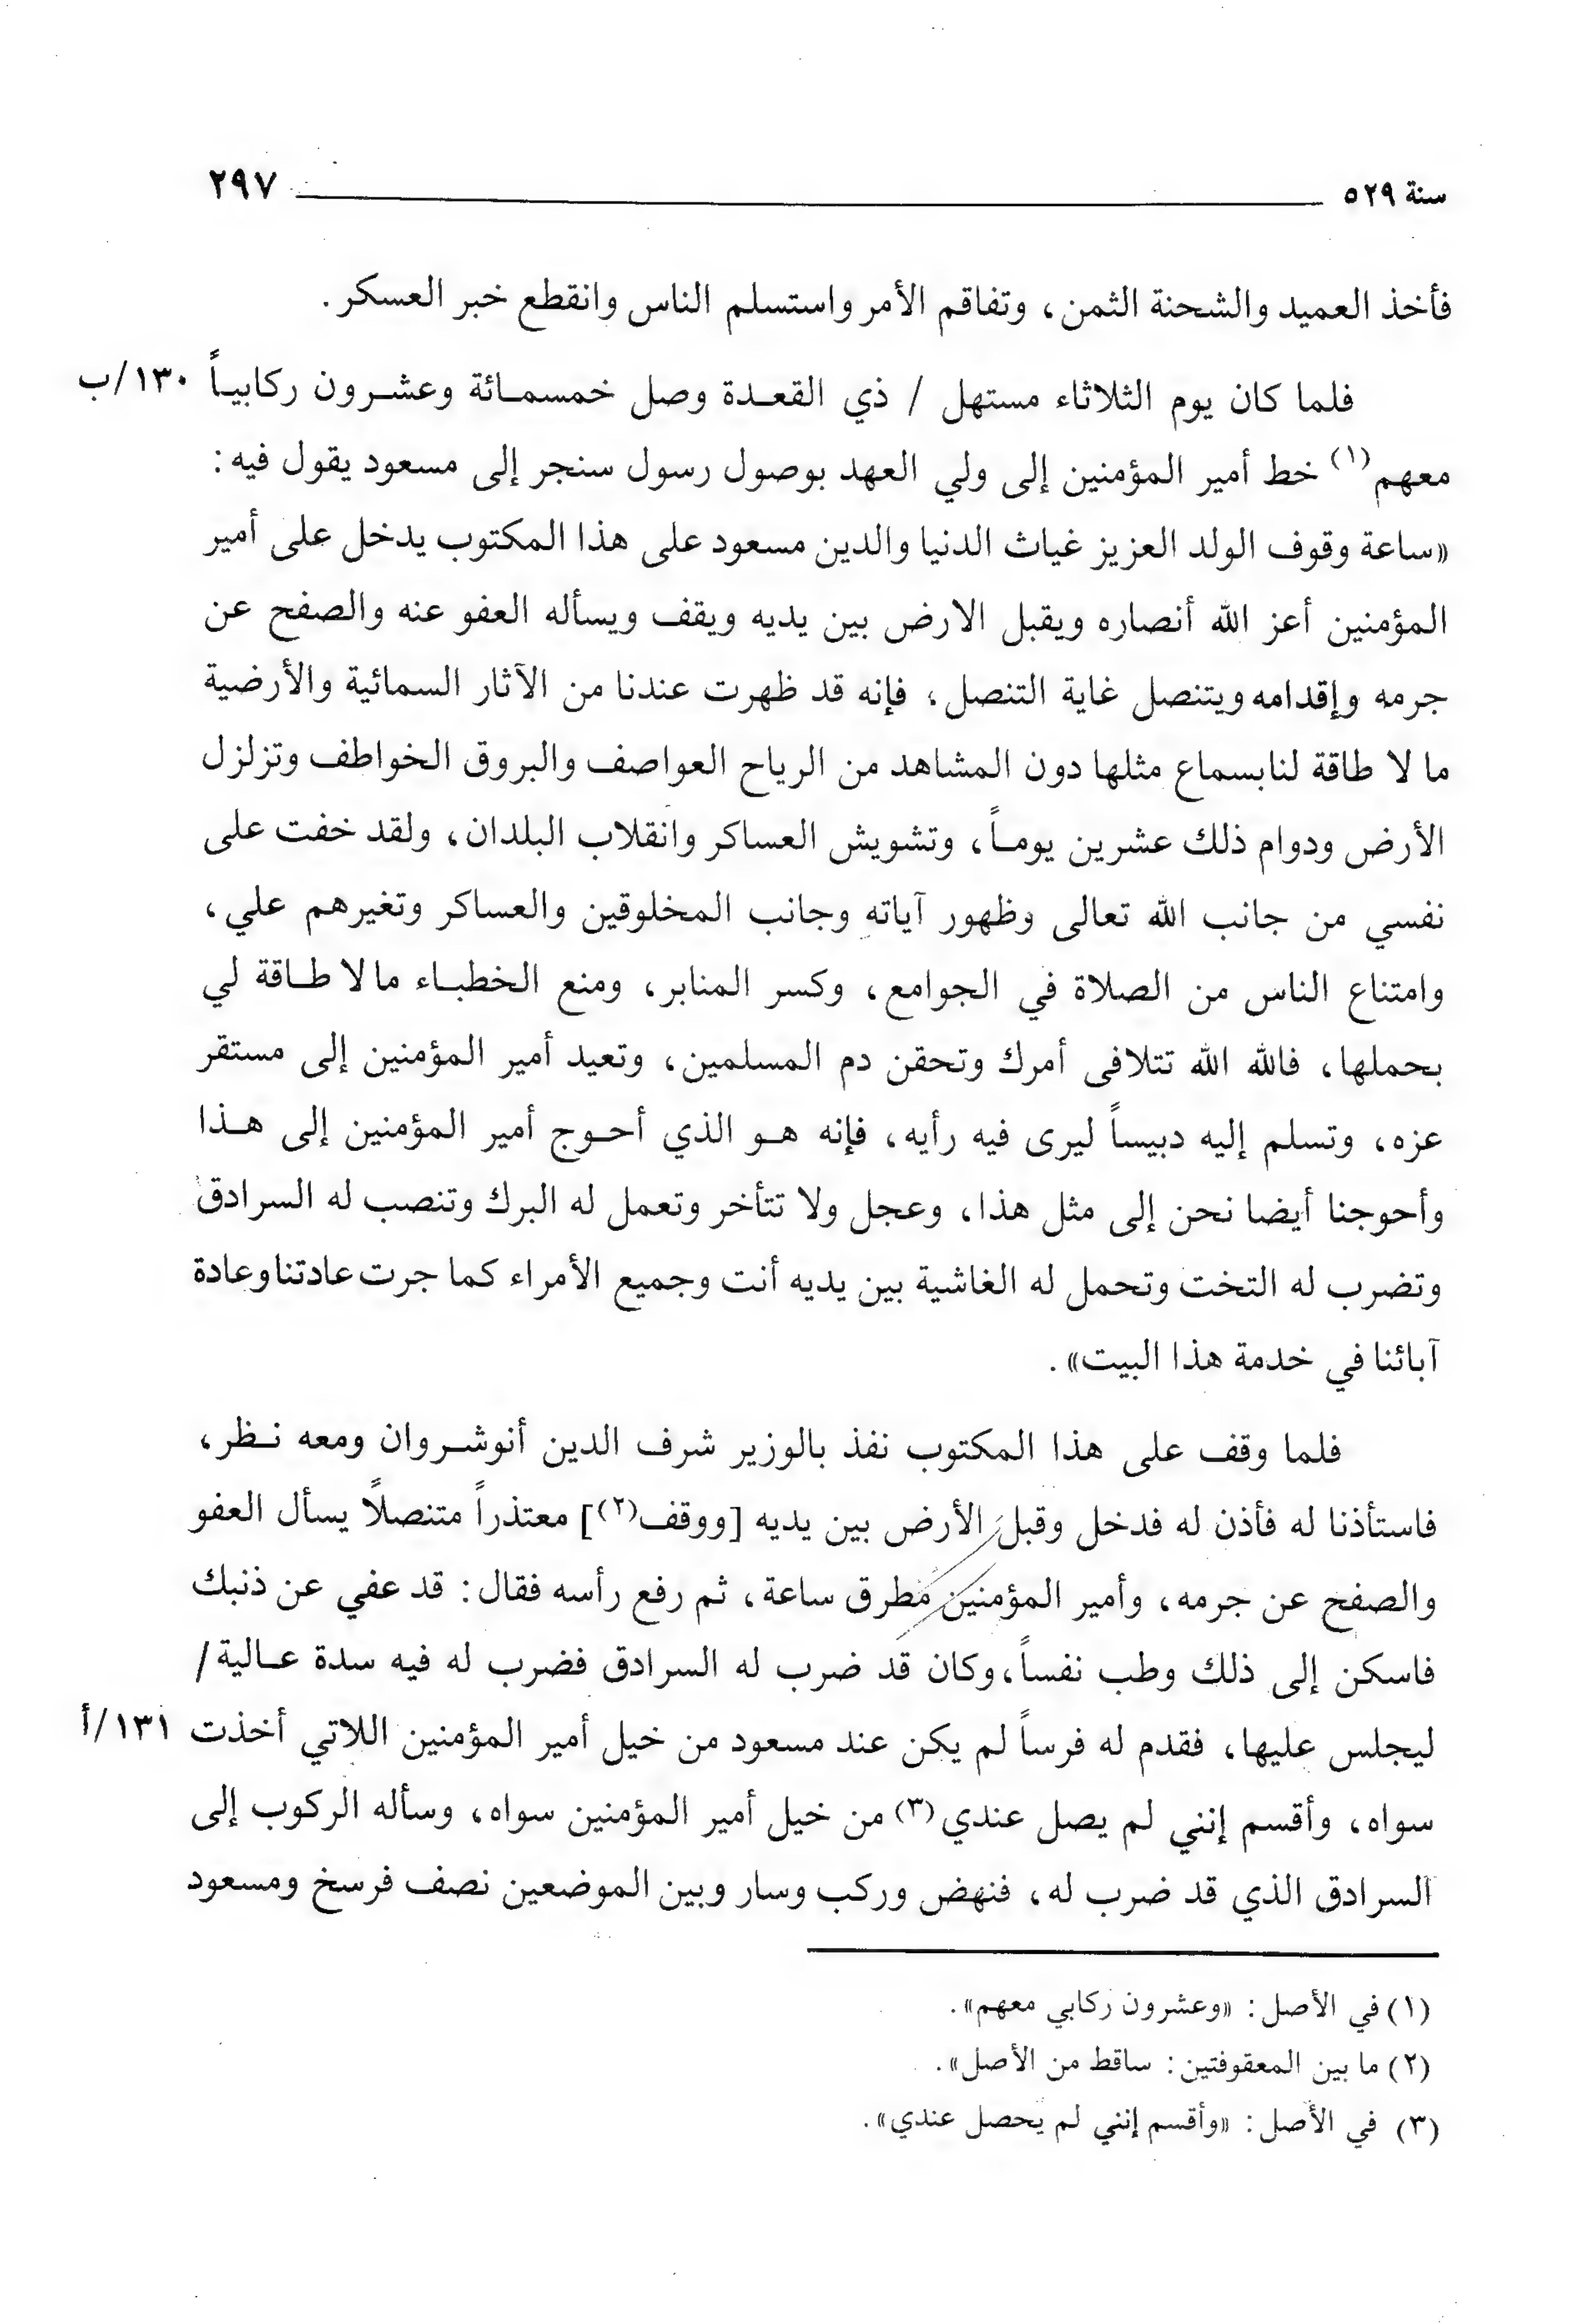 سنة ٥٢٩ ٢٩٧
فأخذ العميد والشحنة الثمن، وتفاقم الأمر واستسلم الناس وانقطع خبر العسكر.
فلما كان يوم الثلاثاء مستهل / ذي القعدة وصل خمسمائة وعشرون ركابياً ١٣٠/ب
معهم(١) خط أمير المؤمنين إلى ولي العهد بوصول رسول سنجر إلى مسعود يقول فيه:
«ساعة وقوف الولد العزيز غياث الدنيا والدين مسعود على هذا المكتوب يدخل على أمير
المؤمنين أعز الله أنصاره ويقبل الارض بين يديه ويقف ويسأله العفو عنه والصفح عن
جرمه وإقدامه ويتنصل غاية التنصل، فإنه قد ظهرت عندنا من الآثار السمائية والأرضية
ما لا طاقة لنابسماع مثلها دون المشاهد من الرياح العواصف والبروق الخواطف وتزلزل
الأرض ودوام ذلك عشرين يوماً، وتشويش العساكر وانقلاب البلدان، ولقد خفت على
نفسي من جانب الله تعالى وظهور آياته وجانب المخلوقين والعساكر وتغيرهم علي،
وامتناع الناس من الصلاة في الجوامع، وكسر المنابر، ومنع الخطباء ما لا طاقة لي
بحملها، فالله الله تتلافى أمرك وتحقن دم المسلمين، وتعيد أمير المؤمنين إلى مستقر
عزه، وتسلم إليه دبيساً ليرى فيه رأيه، فإنه هو الذي أحوج أمير المؤمنين إلى هذا
وأحوجنا أيضا نحن إلى مثل هذا، وعجل ولا تتأخر وتعمل له البرك وتنصب له السرادق
وتضرب له التخت وتحمل له الغاشية بين يديه أنت وجميع الأمراء كما جرت عادتنا وعادة
آبائنا في خدمة هذا البيت».
فلما وقف على هذا المكتوب نفذ بالوزير شرف الدين أنوشروان ومعه نظر،
فاستأذنا له فأذن له فدخل وقبل الأرض بين يديه [ووقف(٢)] معتذراً متنصلاً يسأل العفو
والصفح عن جرمه، وأمير المؤمنين مطرق ساعة، ثم رفع رأسه فقال: قد عفي عن ذنبك
فاسكن إلى ذلك وطب نفساً، وكان قد ضرب له السرادق فضرب له فيه سدة عالية/
ليجلس عليها، فقدم له فرساً لم يكن عند مسعود من خيل أمير المؤمنين اللاتي أخذت ١٣١/أ
سواه، وأقسم إنني لم يصل عندي(٣) من خيل أمير المؤمنين سواه، وسأله الركوب إلى
السرادق الذي قد ضرب له، فنهض وركب وسار وبين الموضعين نصف فرسخ ومسعود
(١) في الأصل: «وعشرون ركابي معهم».
(٢) ما بين المعقوفتين: ساقط من الأصل».
(٣) في الأصل: «وأقسم إنني لم يحصل عندي».